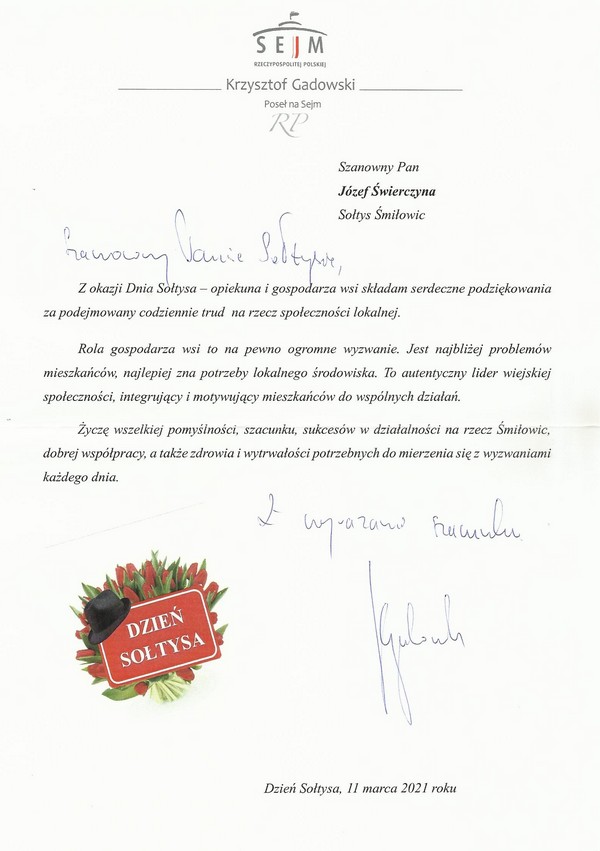 SEJM
RZECZYPOSPOLITEJ POLSKIEJ
Krzysztof Gadowski
Poseł na Sejm
RP
Szanowny Pan
Józef Świerczyna
Sołtys Śmiłowic
Szanowny Panie Sołtysie,
Z okazji Dnia Sołtysa – opiekuna i gospodarza wsi składam serdeczne podziękowania
za podejmowany codziennie trud na rzecz społeczności lokalnej.
Rola gospodarza wsi to na pewno ogromne wyzwanie. Jest najbliżej problemów
mieszkańców, najlepiej zna potrzeby lokalnego środowiska. To autentyczny lider wiejskiej
społeczności, integrujący i motywujący mieszkańców do wspólnych działań.
Życzę wszelkiej pomyślności, szacunku, sukcesów w działalności na rzecz Śmiłowic,
dobrej współpracy, a także zdrowia i wytrwałości potrzebnych do mierzenia się z wyzwaniami
każdego dnia.
Z wyrazami szacunku
DZIEŃ
SOŁTYSA
Dzień Sołtysa, 11 marca 2021 roku